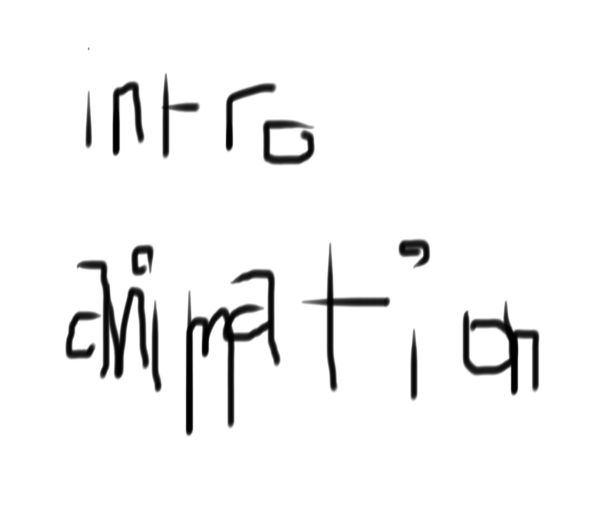 intro
animation